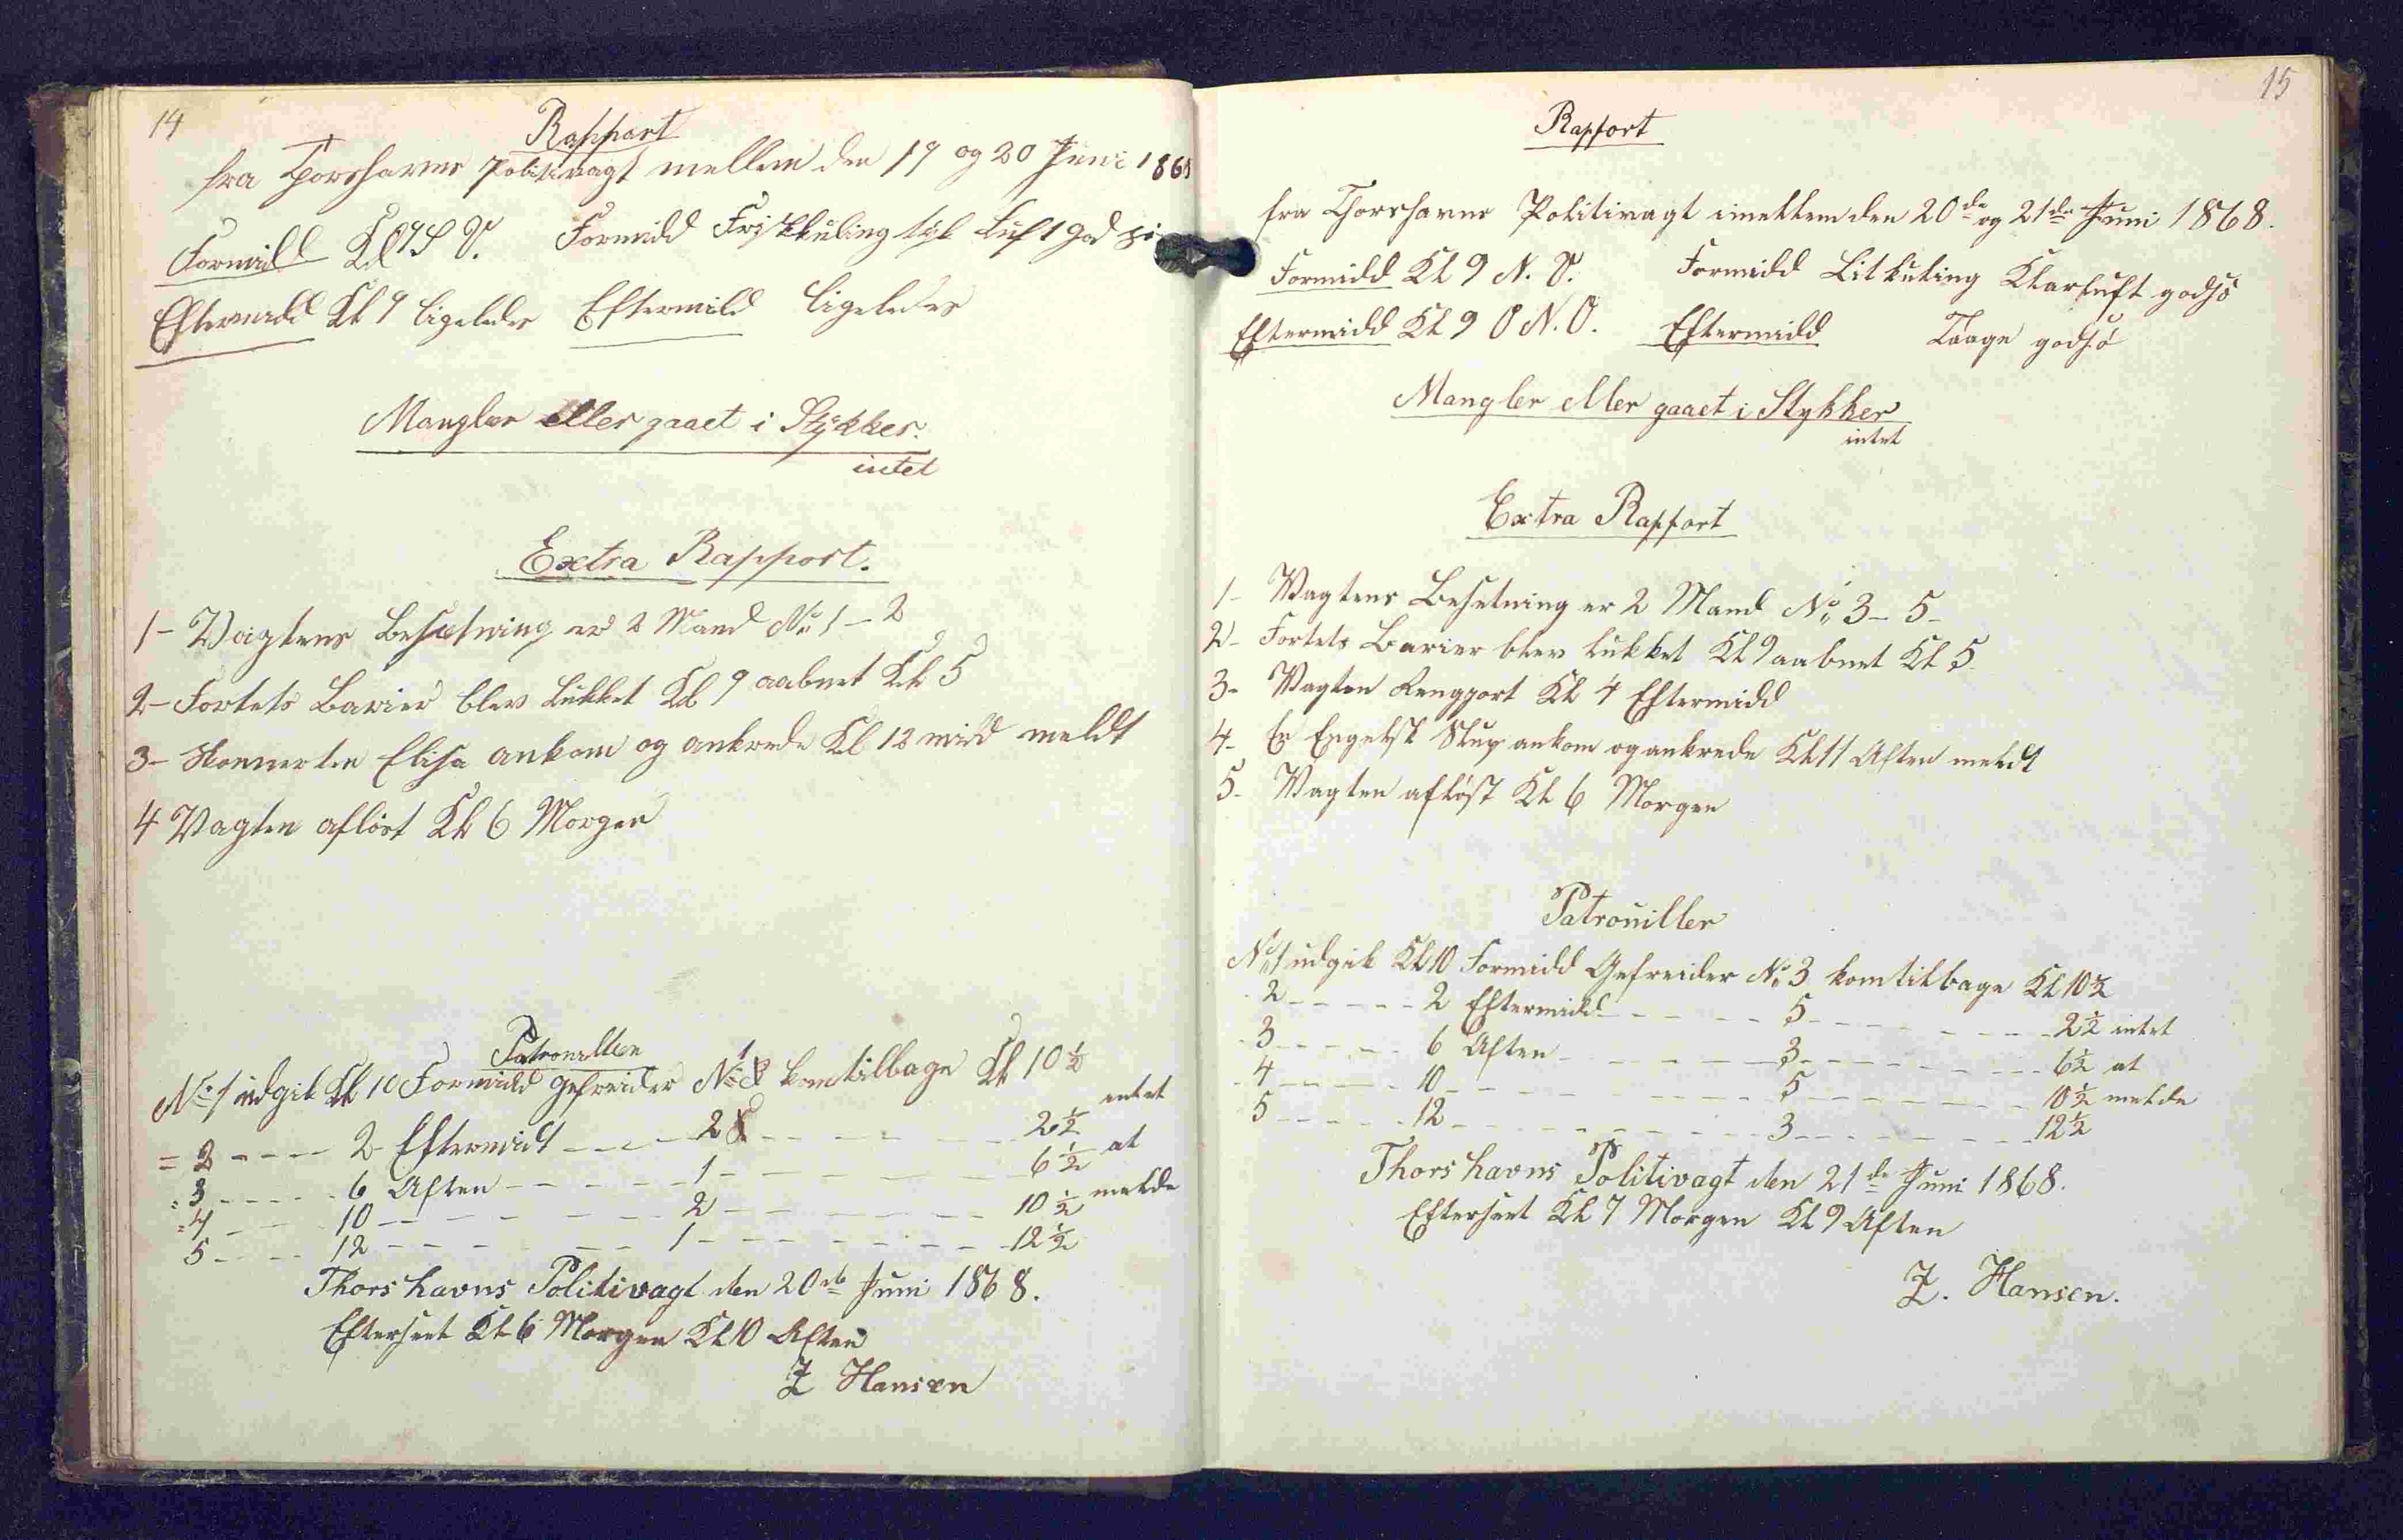 14
Rapport
fra Thorshavns Politivagt mellem den 19 og 20 Juni 1868
Formidd Kl 9 S V. Formidd Frisk kuling tyk Luft god sö
Eftermidd Kl 9 ligeledes Eftermidd ligeledes
Mangler eller gaaet i Stykker.
intet
Extra Rapport.
1- Vagtens Besætning er 2 Mand No 1-2
2- Fortets Barier blev lukket Kl 9 aabnet Kl 5
3- Skonnerten Elisa ankom og ankrede Kl 12 midd meldt
4 Vagten aflöst Kl 6 Morgen
Patrouillen
No 1 udgik Kl 10 Formidd gefreider No 1 kom tilbage Kl 10 1/2
= 2 - - - - 2 Eftermidt - - - - 2 - - - - 2 1/2 intet
= 3 - - - - 6 Aften - - - - 1 - - - - 6 1/2 at
= 4 - - - 10 - - - - 2 - - - - 10 1/2 melde
5 - - - - 12 - - - - 1 - - - - 12 1/2
Thorshavns Politivagt den 20de Juni 1868.
Efterseet Kl 6 Morgen Kl 10 Aften
Z Hansen
15
Rapport
fra Thorshavns Politivagt imellem den 20de og 21de Juni 1868.
Formidd Kl 9 N. O. Formidd Lit kuling Klar luft god sö
Eftermidd Kl 9 O N. O. Eftermidd Taage god sö
Mangler eller gaaet i Stykker
intet
Extra Rapport
1- Vagtens Besetning er 2 Mand No 3-5-
2- Fortets Barier blev lukket Kl 9 aabnet Kl 5
3- Vagten Rengjort Kl 4 Eftermidd
4- En Engelsk Slup ankom og ankrede Kl 11 Aften meldt
5- Vagten aflöst Kl 6 Morgen
Patrouiller
No 1 udgik Kl 10 Formidd Gefreider No 3 kom tilbage Kl 10 1/2
2 - - - - - 2 Eftermidd - - - - 5 - - - - 2 1/2 intet
3 - - - - - 6 Aften - - - - 3 - - - - 6 1/2 at
4 - - - - 10 - - - - 5 - - - - 10 1/2 melde
5 - - - - 12 - - - - 3 - - - - 12 1/2
Thorshavns Politivagt den 21de Juni 1868.
Efterseet Kl 7 Morgen Kl 9 Aften
Z. Hansen.